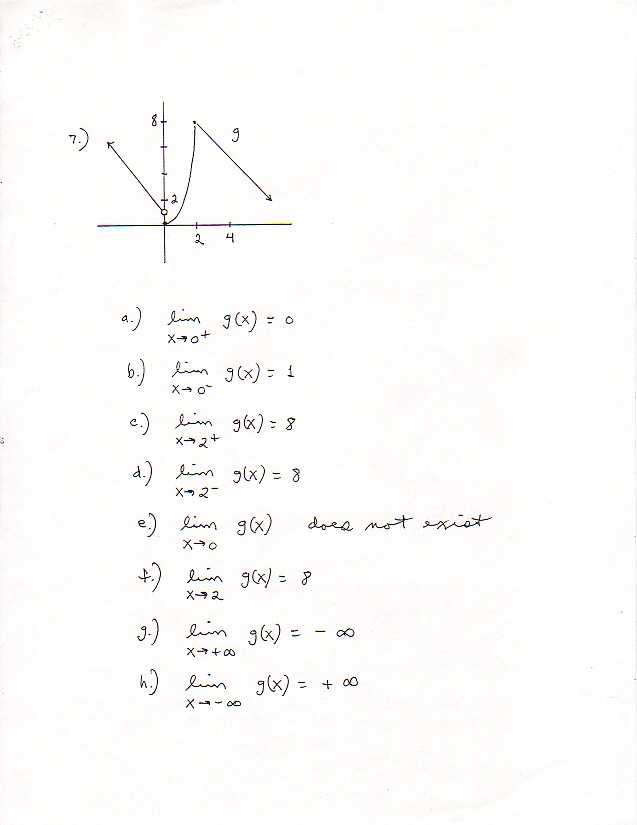 7.)
8
g
2
2 4
a.) lim x→0+ g(x) = 0
b.) lim x→0- g(x) = 1
c.) lim x→2+ g(x) = 8
d.) lim x→2- g(x) = 8
e.) lim x→0 g(x) does not exist
f.) lim x→2 g(x) = 8
g.) lim x→+∞ g(x) = - ∞
h.) lim x→-∞ g(x) = + ∞